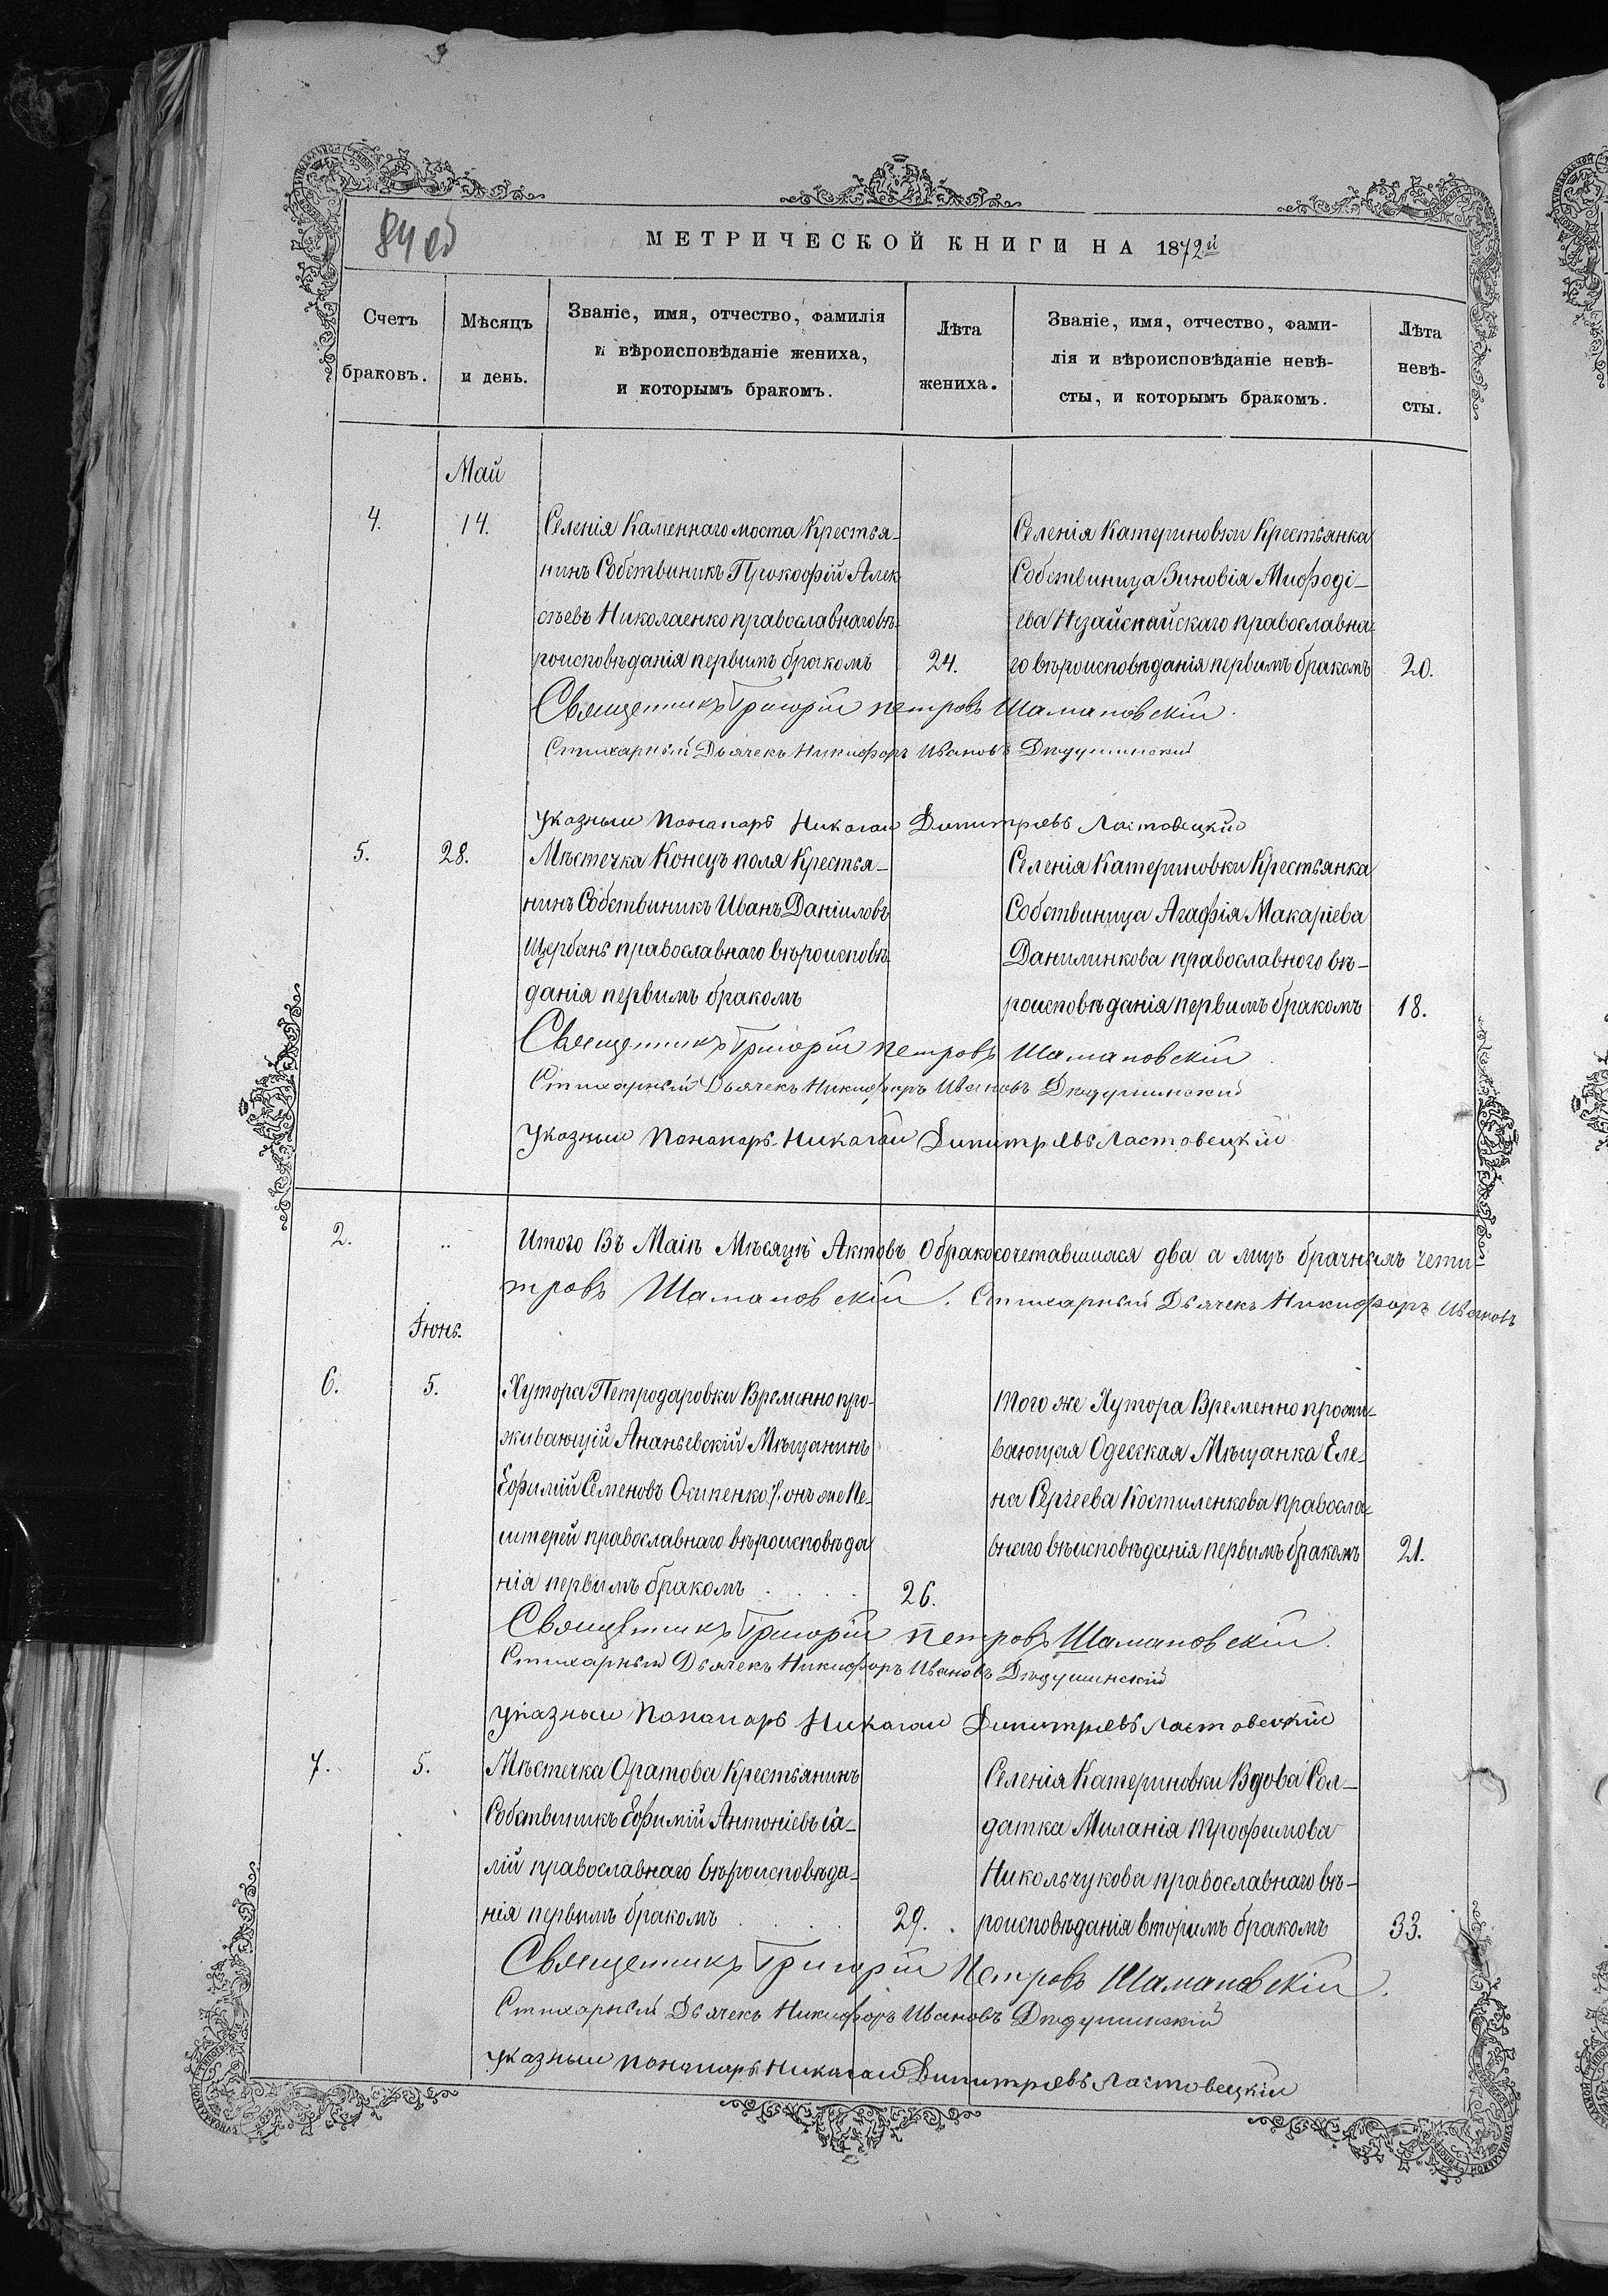 84 об
МЕТРИЧЕСКОЙ КНИГИ НА 1872й
Счетъ браковъ.
Мѣсяцъ и день.
Званіе, имя, отчество, фамилія
и вѣроисповѣданіе жениха,
и которымъ бракомъ.
Лѣта жениха.
Званіе, имя, отчество, фами-
лія и вѣроисповѣданіе невѣ-
сты, и которымъ бракомъ.
Лѣта невѣ-
сты.
Май
4.
14.
Селенія Каменнаго моста Крестья-
нинъ Собственикъ Прокофій Алек
сѣевъ Николаенко православнаго вѣ-
роисповѣданія первымъ бракомъ
24.
Селенія Катериновки Крестьянка
Собственица Зиновія Мифоді-
ева православна-
го вѣроисповѣданія первымъ бракомъ
20.
Священникъ Григорій Петровъ Шамановскій.
Стихарный Дьячекъ Никифоръ Ивановъ Дѣдушинскій
Указный Пономарь Николай Димитріевъ Ластовецкій
5.
28.
Мѣстечка Конецъ поля Крестья-
нинъ Собственикъ Иванъ Даніиловъ
Щербань православнаго вѣроисповѣ-
данія первымъ бракомъ
Селенія Катериновки Крестьянка
Собственица Агафія Макаріева
Данилинкова православного вѣ-
роисповѣданія первымъ бракомъ
18.
Священникъ Григорій Петровъ Шамановскій
Стихарный Дьячекъ Никифоръ Ивановъ Дѣдушинскій
Указный Пономарь Николай Димитріевъ Ластовецкій
2.
Итого Въ Маіѣ Мѣсяцѣ Актовъ О бракосочетавшихся два а лицъ брачнымъ чети-
тровъ Шамановскій. Стихарный Дьячекъ Никифоръ Ивановъ
Іюнь.
6.
5.
Хутора Петродаровки Временно про-
живающій Ананьевскій Мѣщанинъ
Ефимій Семеновъ Осипенко /: онъ же Пе-
штерей православнаго вѣроисповѣда
нія первымъ бракомъ
26.
Того же Хутора Временно прожи-
вающая Одесская Мѣщанка Еле-
на Сергеева Костиленкова Правосла-
внаго вѣисповѣданія первымъ бракомъ
21.
Священникъ Григорій Петровъ Шамановскій.
Стихарный Дьячекъ Никифоръ Ивановъ Дѣдушинскій
Указный Пономарь Николай Димитріевъ Ластовецкій
7.
5.
Мѣстечка Оратова Крестьянинъ
Собственикъ Ефимій Антоніевъ Га-
лій православнаго вѣроисповѣда-
нія первымъ бракомъ
29.
Селенія Катериновки Вдова Сол-
датка Миланія Трофимова
Никольчукова православнаго вѣ-
роисповѣданія вторымъ бракомъ
33.
Священникъ Григорій Петровъ Шамановскій.
Стихарный Дьячекъ Никифоръ Ивановъ Дѣдушинскій
Указный Пономарь Николай Димитріевъ Ластовецкій